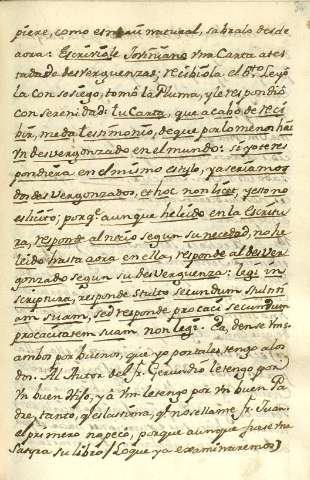 piere, como es mui natural, sabralo desde
aora: Escriviole Joviniano vna Carta ates
tada de desverguenzas; recibiola el Bto. Leyo
la con sosiego, tomò la Pluma, y le respondiò
con serenidad: tu Carta, que acabo de reci
bir, me da testimonio, de que por lo menos hai
vn desvergonzado en el mundo: si yo te res
pondiera en el mismo estylo, ya seriamos
dos desvergonzados, et hoc non licet, y esto no
es licito; porqe. aunque he leido en la Escritu
ra, responde al necio segun su necedad, no he
leido hasta aora en ella, responde al desver
gonzado segun su desverguenza: legi in
scriptura, responde stulto secundum stulti
am suam, sed responde procaci secundum
procacitatem suam non legi. Ea, dense Vms.
ambos por buenos, que ya por tales tengo a los
dos. Al Autor del Fr. Gerundio le tengo por
vn buen hijo, y à Vm. le tengo por vn buen Pa
dre, tanto, qe. es lastima, qe. no se llame Fr. Juan.
el primero no pecò, porque aunque fuese vna
Satyra su libro (lo que ya examinaremos)